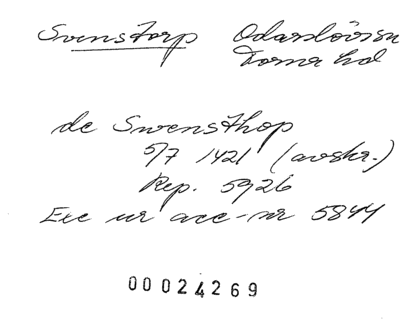 Svenstorp Odarslövs sn
Torna hd
de Swensthop
5/7 1421 (avskr.)
Rep. 5926
Exc ur acc-nr 5844
00024269